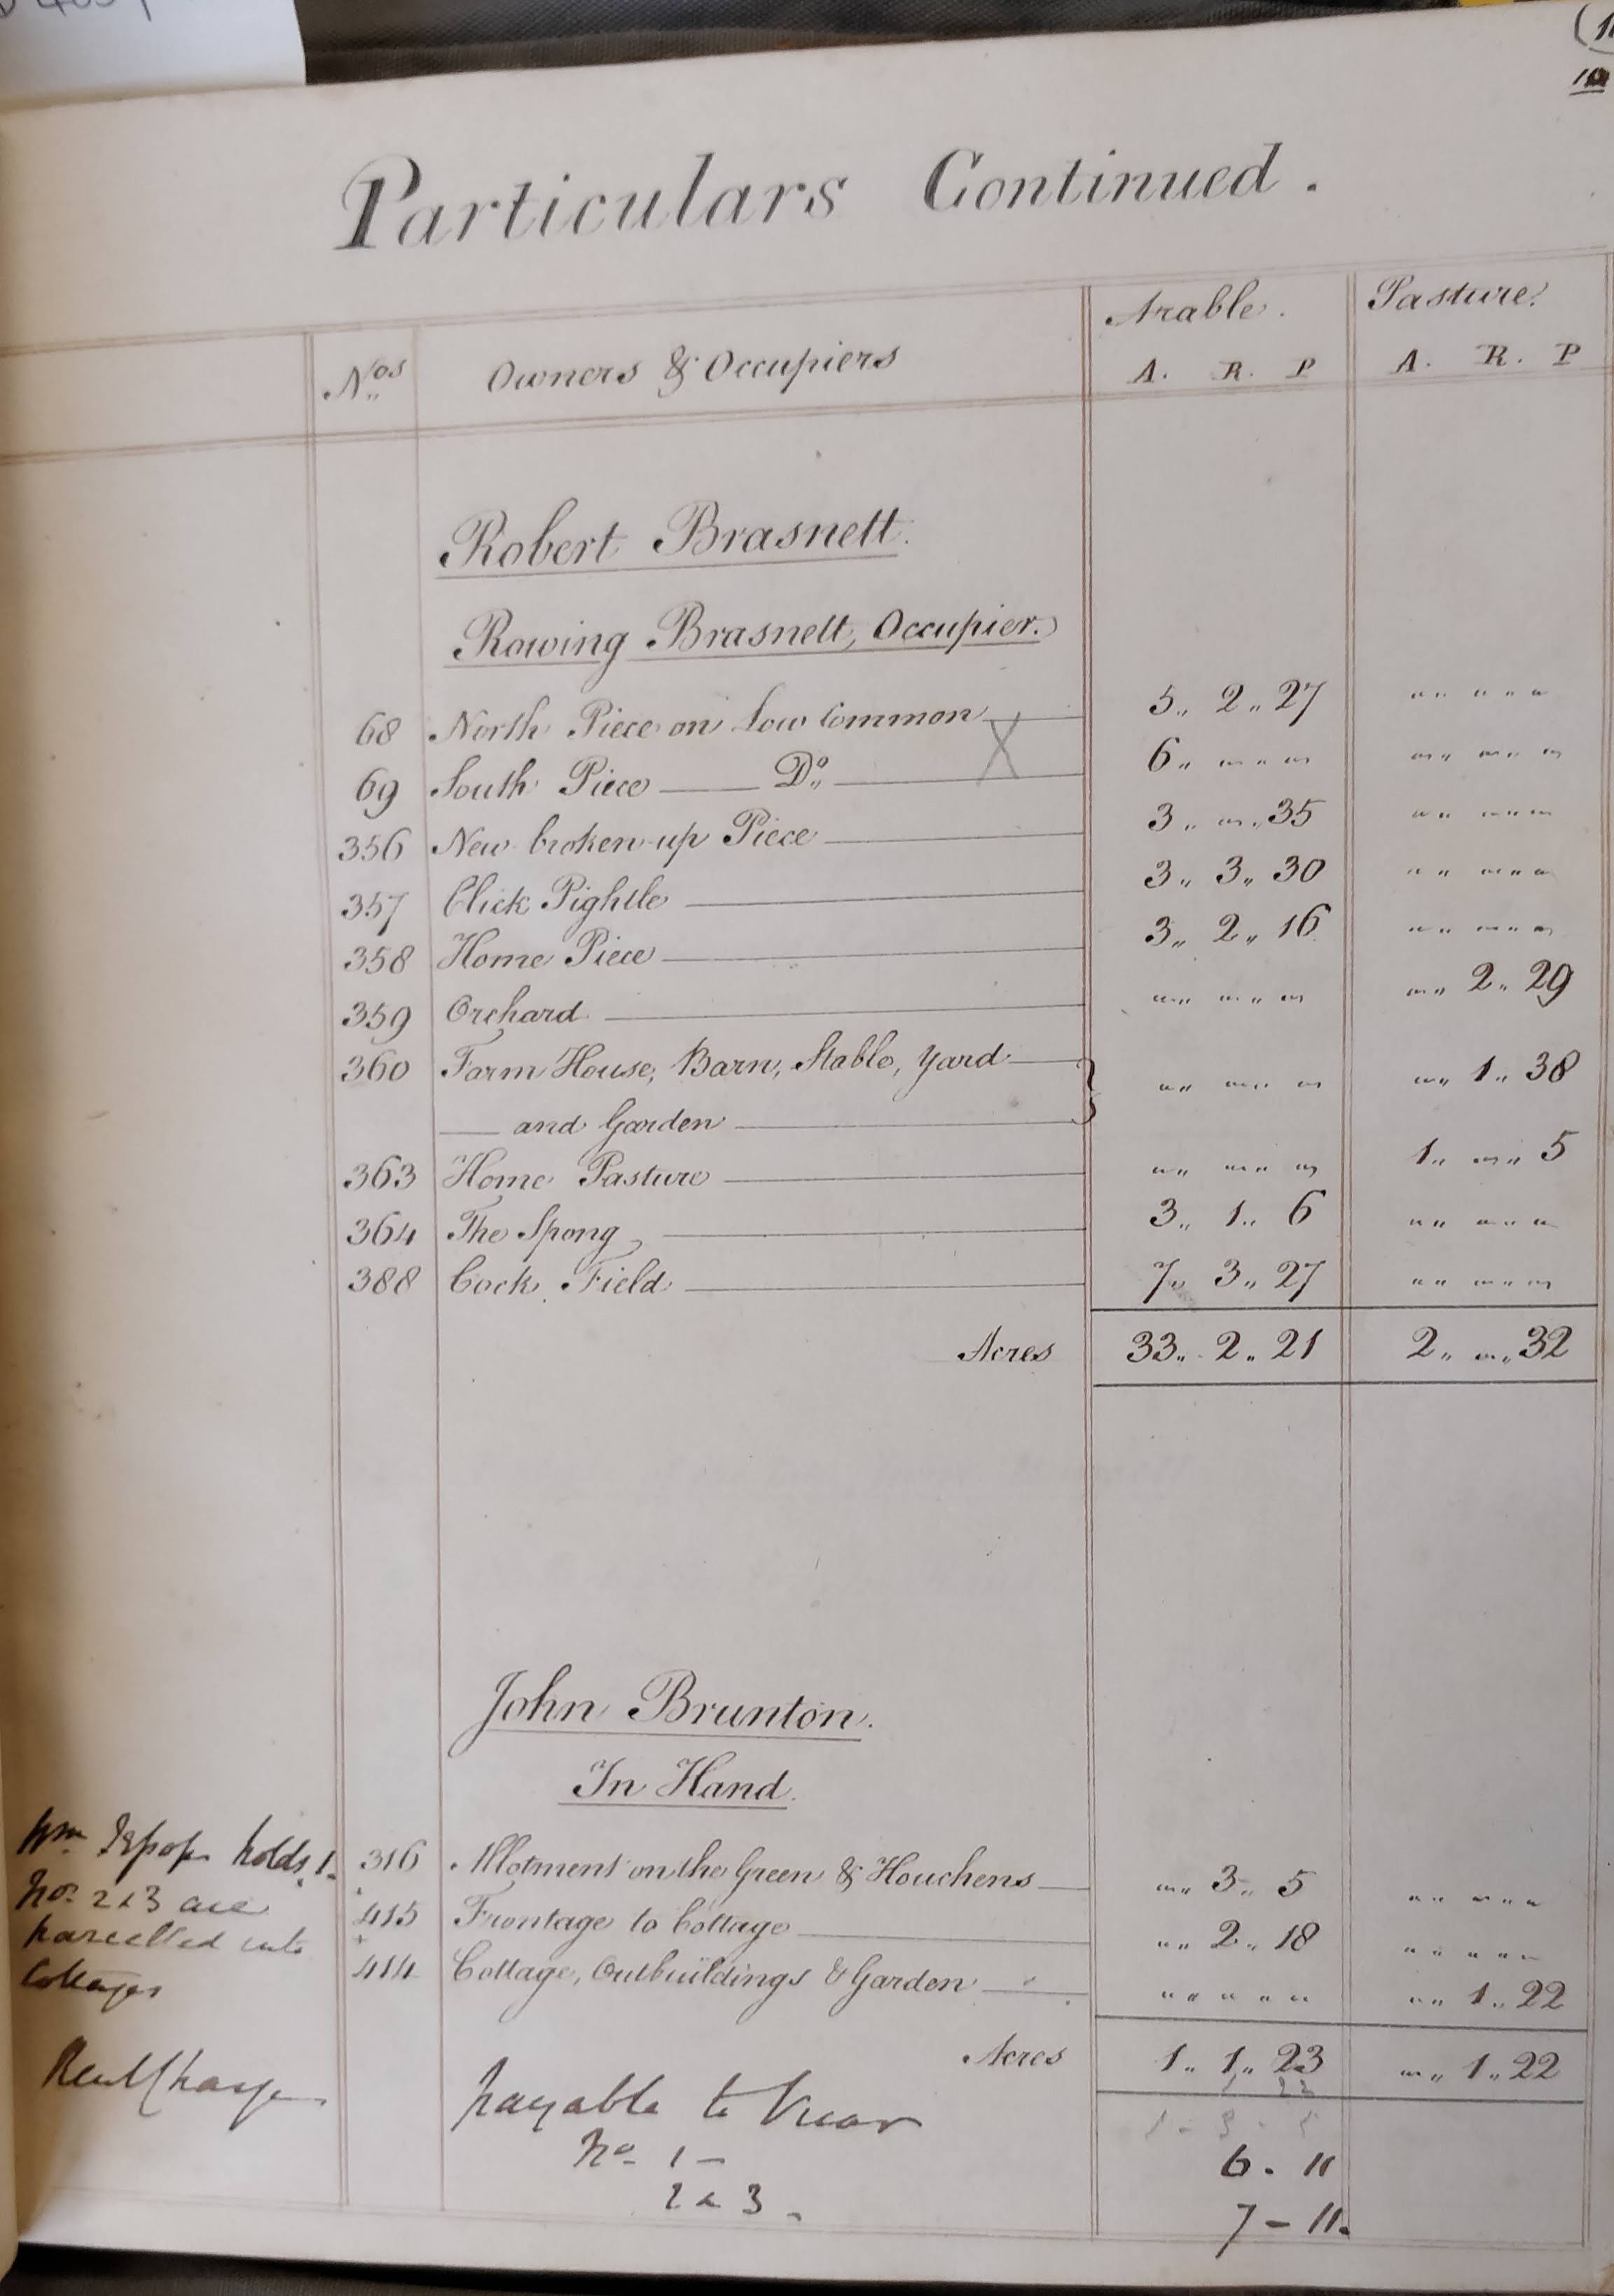 Particulars Continued.
Arable. Pasture.
Nos Owners & Occupiers A. R. P A. R. P
Robert Brasnett.
Rowing Brasnett, Occupier.
68 North Piece on Low Common 5 „ 2 „ 27 „ „ „
69 South Piece Do 6 „ „ „ „ „ „
356 New broken-up Piece 3 „ „ 35 „ „ „
357 Click Pightle 3 „ 3 „ 30 „ „ „
358 Home Piece 3 „ 2 „ 16 „ „ „
359 Orchard „ „ „ „ 2 „ 29
360 Farm House, Barn, Stable, Yard
and Garden „ „ „ „ 1 „ 38
363 Home Pasture „ „ „ 1 „ „ 5
364 The Spong 3 „ 1 „ 6 „ „ „
388 Cock Field 7 „ 3 „ 27 „ „ „
Acres 33 „ 2 „ 21 2 „ „ 32
John Brunton.
In Hand.
316 Allotment on the Green & Houchens „ 3 „ 5 „ „ „
415 Frontage to Cottage „ 2 „ 18 „ „ „
414 Cottage, Outbuildings & Garden „ „ „ „ 1 „ 22
Acres 1 „ 1 „ 23 „ 1 „ 22
Wm holds 1
Nos 2 & 3 are
parcelled into
Cottages
Rent Charge payable to Vicar
No 1 - 6 - 11
2 & 3 - 7 - 11